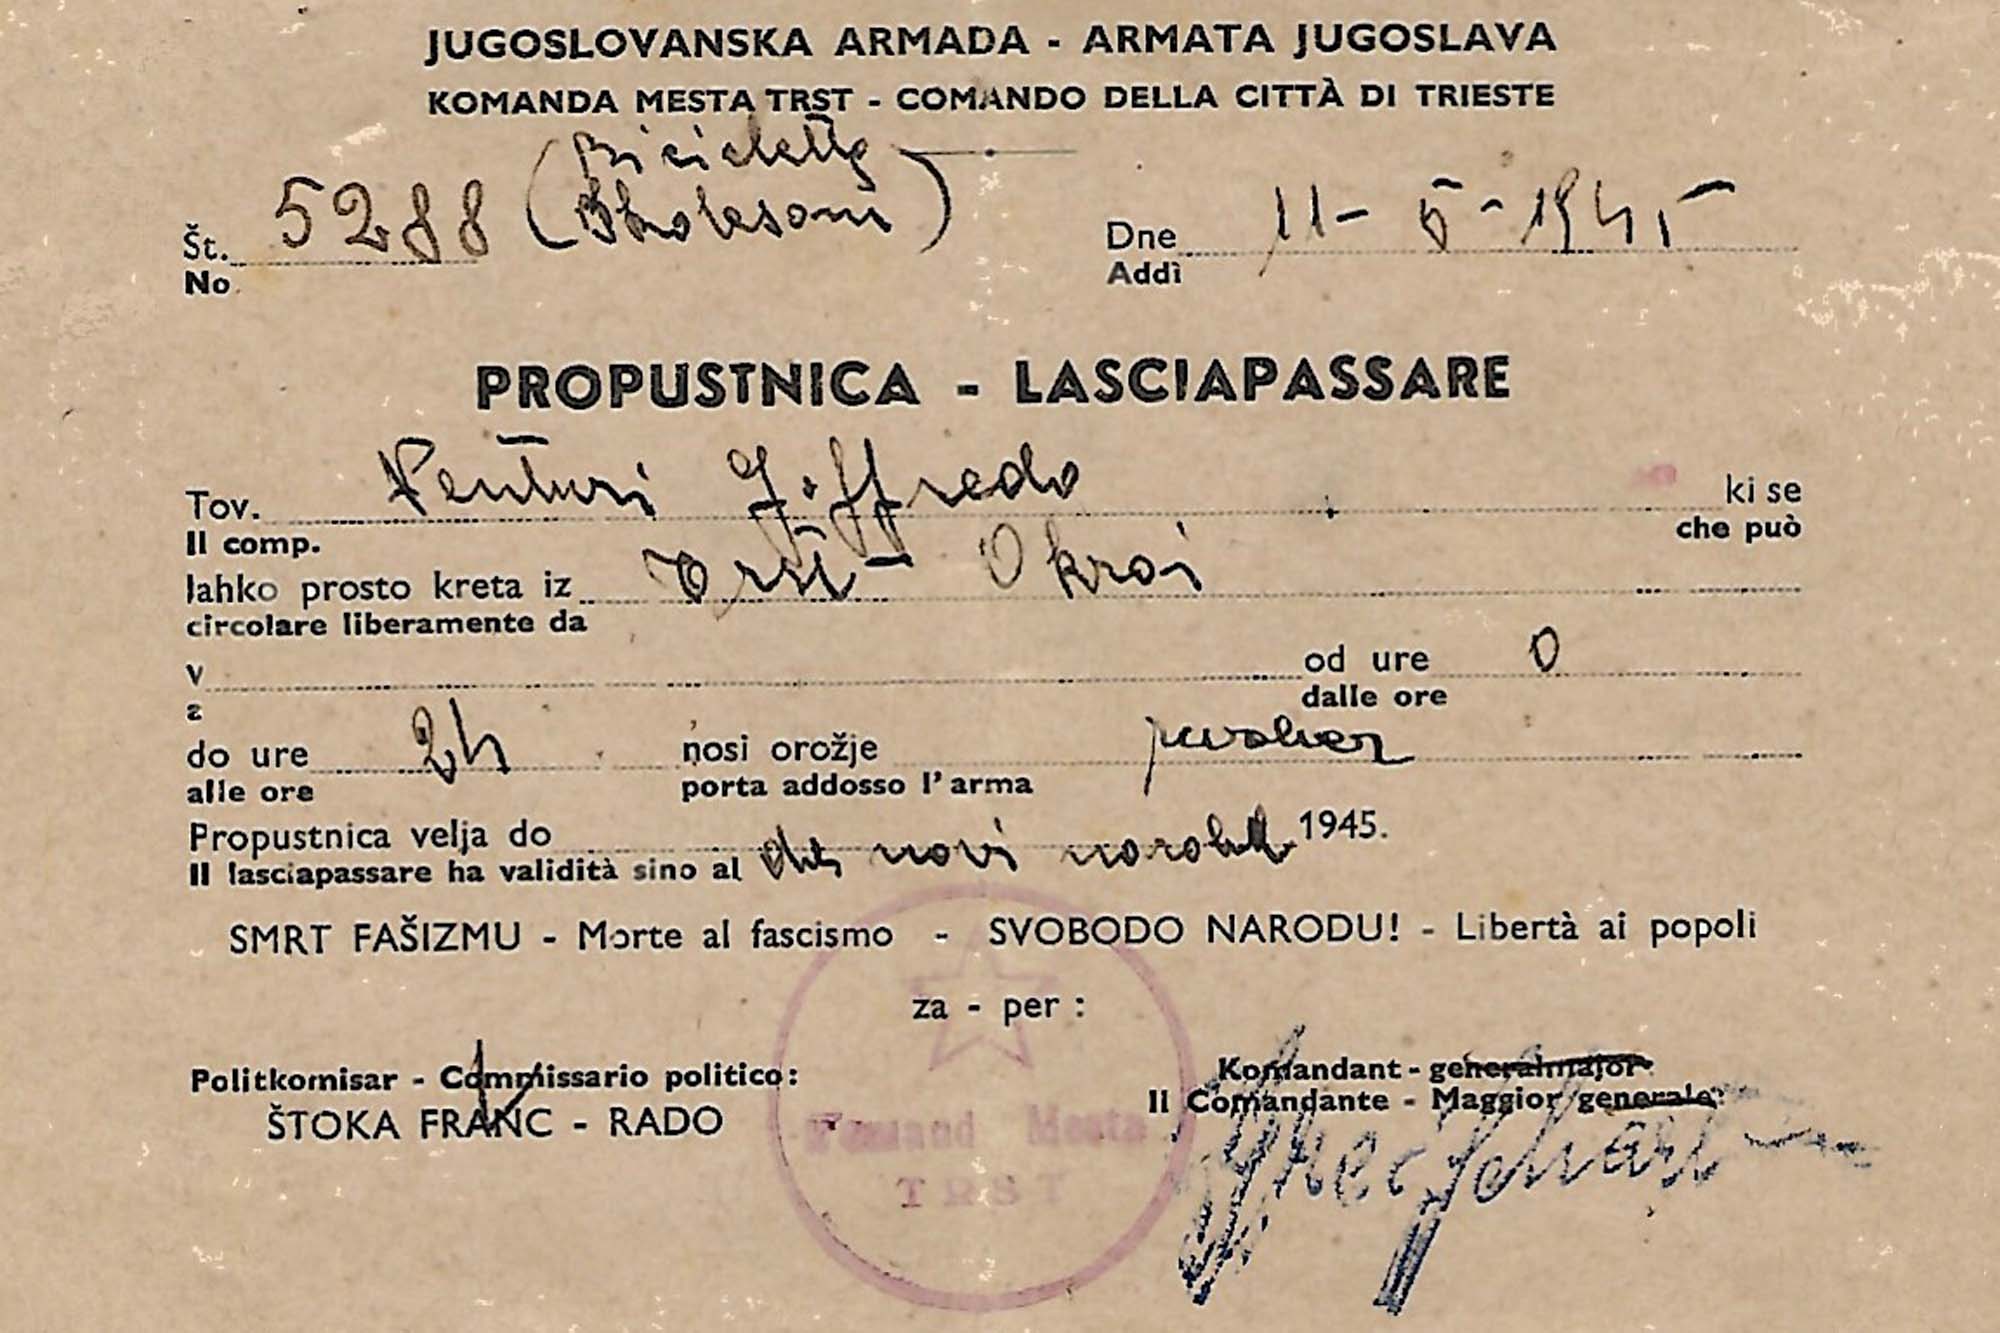 JUGOSLOVANSKA ARMADA - ARMATA JUGOSLAVA
KOMANDA MESTA TRST - COMANDO DELLA CITTÀ DI TRIESTE
Št. 5288 (Bicicletta
No
Dne 11-5-1945
Addì
PROPUSTNICA - LASCIAPASSARE
Tov. Venturi Jiffredo ki se
Il comp. che può
lahko prosto kreta iz Trst - Okroi
circolare liberamente da
v od ure 0
a dalle ore
do ure 24 nosi orožje revolver
alle ore porta addosso l'arma
Propustnica velja do novi 1945.
Il lasciapassare ha validità sino al
SMRT FAŠIZMU - Morte al fascismo - SVOBODO NARODU! - Libertà ai popoli
za - per :
Politkomisar - Commissario politico:
ŠTOKA FRANC - RADO
Komandant - generalmajor
Il Comandante - Maggior generale:
Komand Mesta
TRST